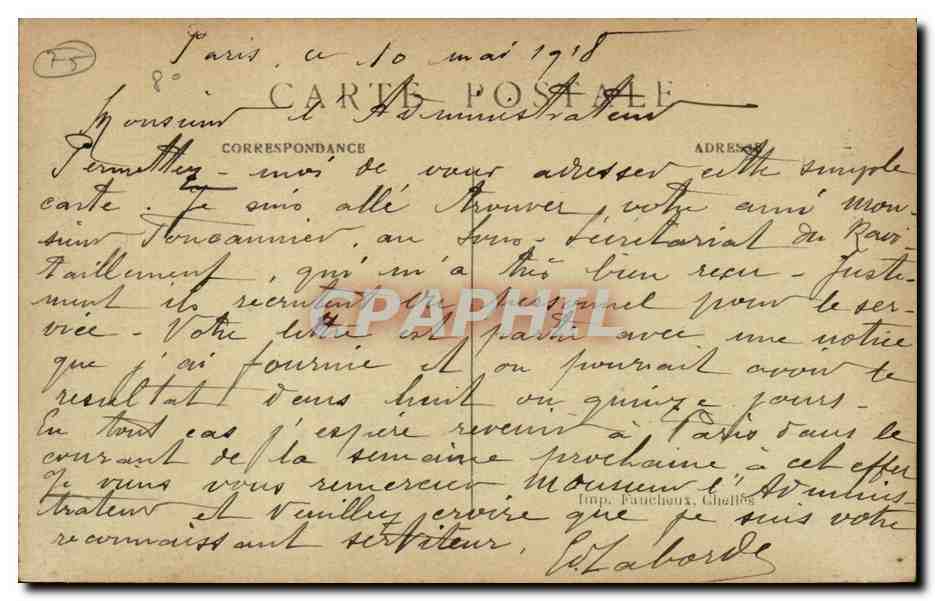 75
Paris, ce 10 mai 1918
8°
CARTE POSTALE
Monsieur l'Administrateur
CORRESPONDANCE ADRESSE
Permettez-moi de vous adresser cette simple
carte. Je suis allé trouver votre ami Mon-
sieur au Sous-Secrétariat du Ravi-
taillement, qui m'a très bien reçu - Juste-
ment ils recrutent du personnel pour le ser-
vice - Votre lettre est partie avec une notice
que j'ai fournie et on pourrait avoir le
resultat dans huit ou quinze jours -
En tout cas j'espère revenir à Paris dans le
courant de la semaine prochaine, à cet effet
Je viens vous remercier Monsieur l'Adminis-
Imp. Faucheux, Chelles
trateur et Veuillez croire que je suis votre
reconnaissant serviteur.
Ed. Laborde
CPAPHIL